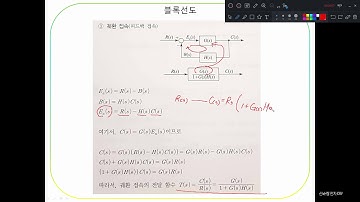 블록선도
③ 궤환 접속(피드백 접속)
R(s) E₀(s) G(s) C(s)
B(s) H(s)
R(s) G(s) / 1+G(s)H(s) C(s)
R(s) — C(s)=R(s) (1+G(s)H(s)
E₀(s) = R(s) − B(s)
B(s) = H(s)C(s)
E₀(s) = R(s) − H(s)C(s)
여기서, C(s) = G(s)E₀(s)이므로
C(s) = G(s)(R(s) − H(s)C(s)) = G(s)R(s) − G(s)H(s)C(s)
C(s) + G(s)H(s)C(s) = G(s)R(s)
(1 + G(s)H(s))C(s) = G(s)R(s)
따라서, 궤환 접속의 전달 함수 T(s) = C(s)/R(s) = G(s)/1+G(s)H(s)